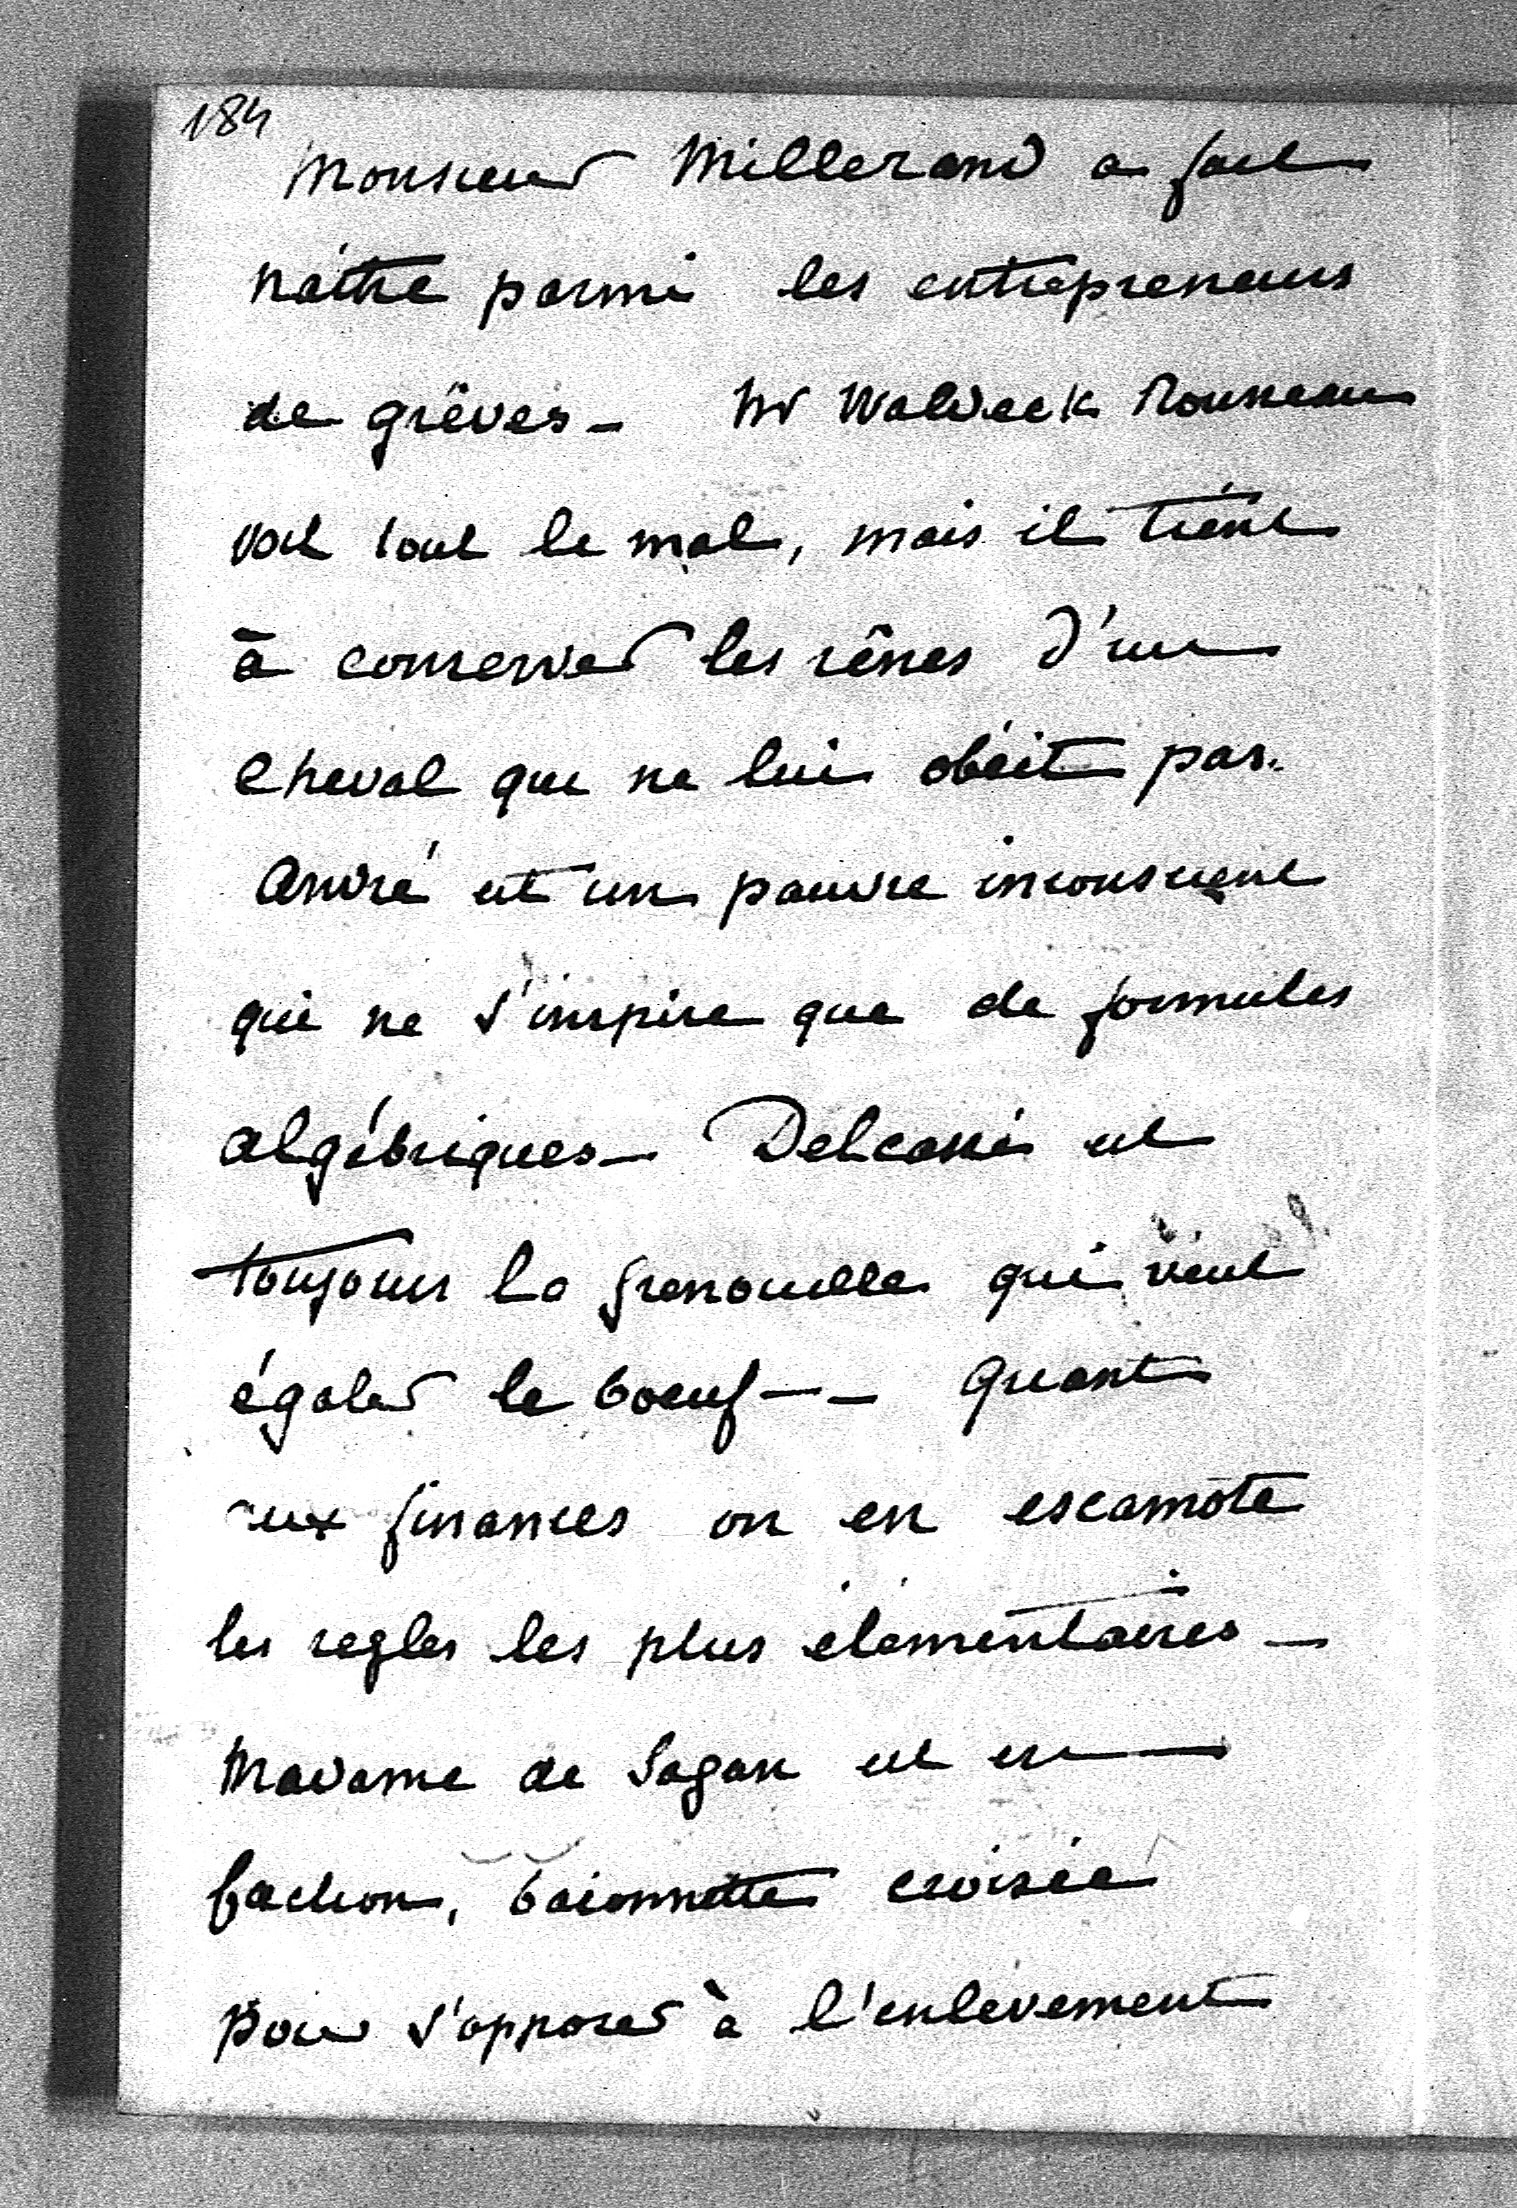 184
Monsieur Millerand a fait
naître parmi les entrepreneurs
de grèves – Mr Waldeck Rousseau
voit tout le mal, mais il tient
à conserver les rênes d'un
cheval qui ne lui obéit pas.
André est un pauvre inconscient
qui ne s'inspire que de formules
algébriques – Delcassé est
toujours la grenouille qui veut
égaler le boeuf – – Quant
aux finances on en escamote
les regles les plus élémentaires –
Madame de Sagan est en
faction, baïonnette croisée
pour s'opposer à l'enlèvement